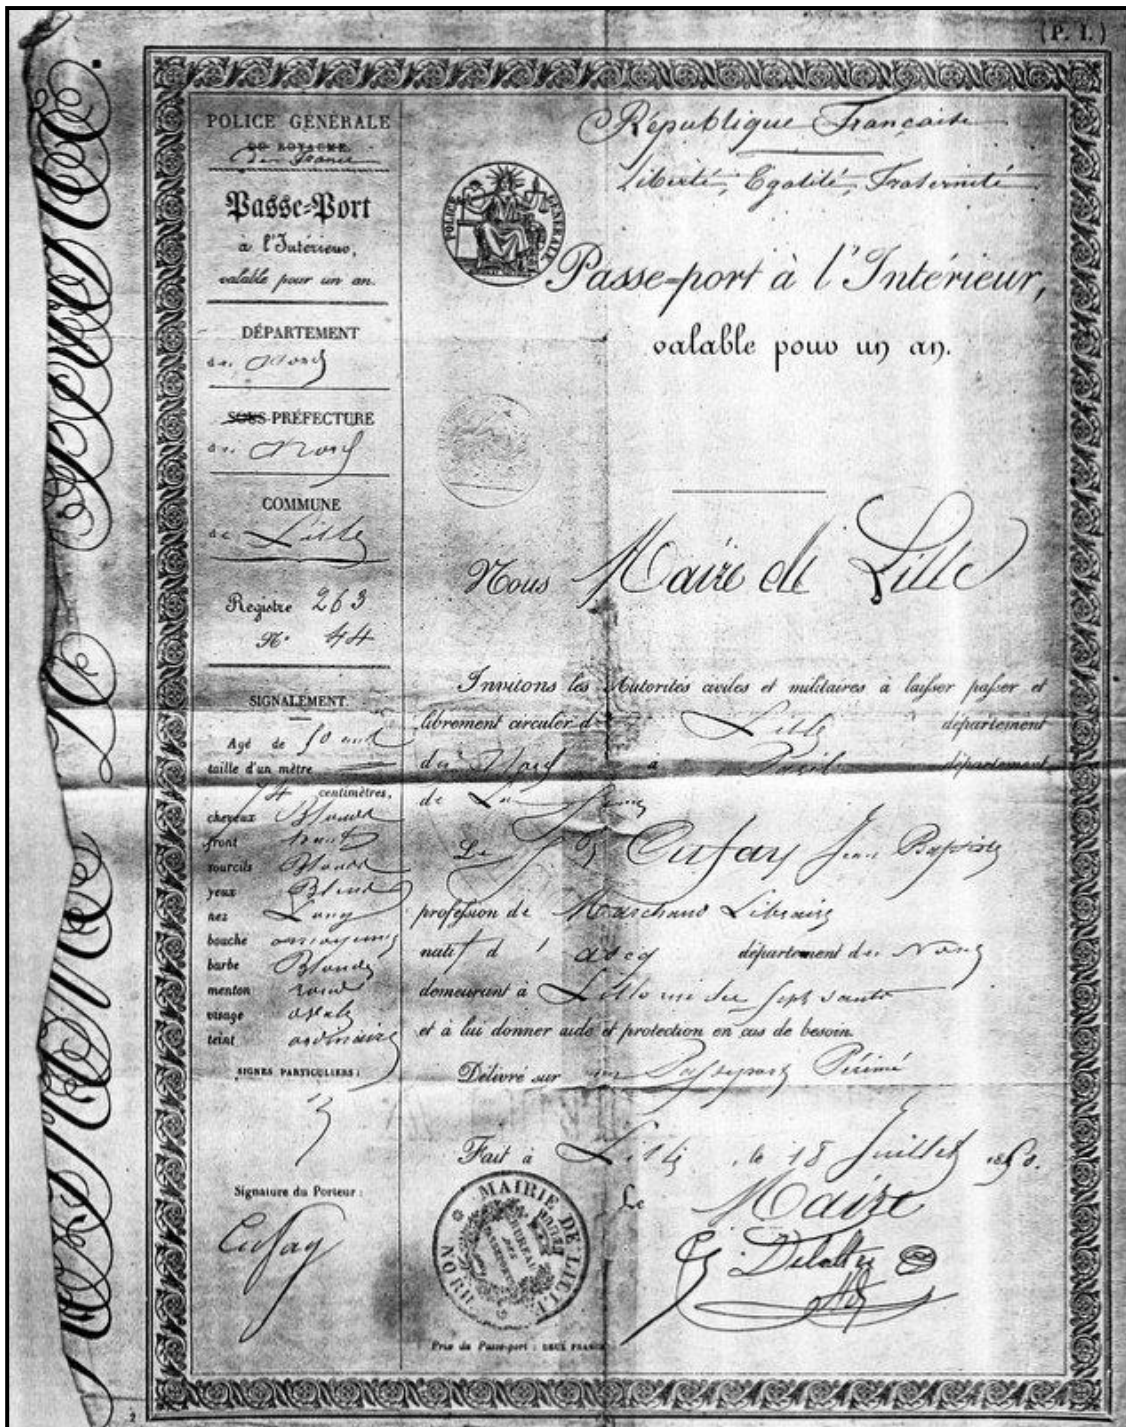 (P. I.)
POLICE GÉNÉRALE
DU ROYAUME
de France
Passe=Port
à l'Intérieur,
valable pour un an.
DÉPARTEMENT
du Nord
SOUS-PRÉFECTURE
du Nord
COMMUNE
de Lille
Registre 263
N° 44
SIGNALEMENT.
Agé de 50 ans
taille d'un mètre
74 centimètres,
cheveux Blonds
front haut
sourcils Blonds
yeux Bleus
nez Long
bouche moyenne
barbe Blonde
menton rond
visage ovale
teint ordinaire
SIGNES PARTICULIERS :
Signature du Porteur :
Cufay
République Française
Liberté, Egalité, Fraternité
POLICE GÉNÉRALE
Passe=port à l'Intérieur,
valable pour un an.
Nous Maire de Lille
Invitons les Autorités civiles et militaires à laisser passer et
librement circuler de Lille département
du Nord à Paris département
de La Seine
Le Sr Cufay Jean Baptiste
profession de Marchand Libraire
natif d'ascq département du Nord
demeurant à Lille rue des sept sauts
et à lui donner aide et protection en cas de besoin.
Délivré sur un Passeport Périmé
Fait à Lille, le 18 Juillet 1850.
Le Maire
MAIRIE DE LILLE
NORD
BUREAU DES PASSEPORTS
Delattre
Prix du Passe-port : DEUX FRANCS
2